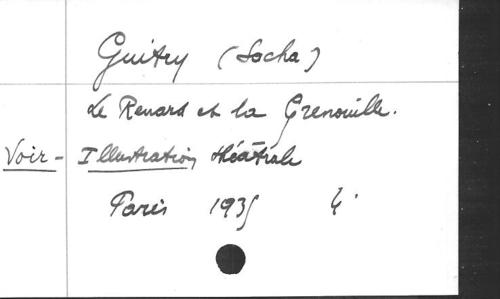 Guitry (Sacha)
Le Renard et la Grenouille.
Voir - Illustration théâtrale
Paris 1935 4°